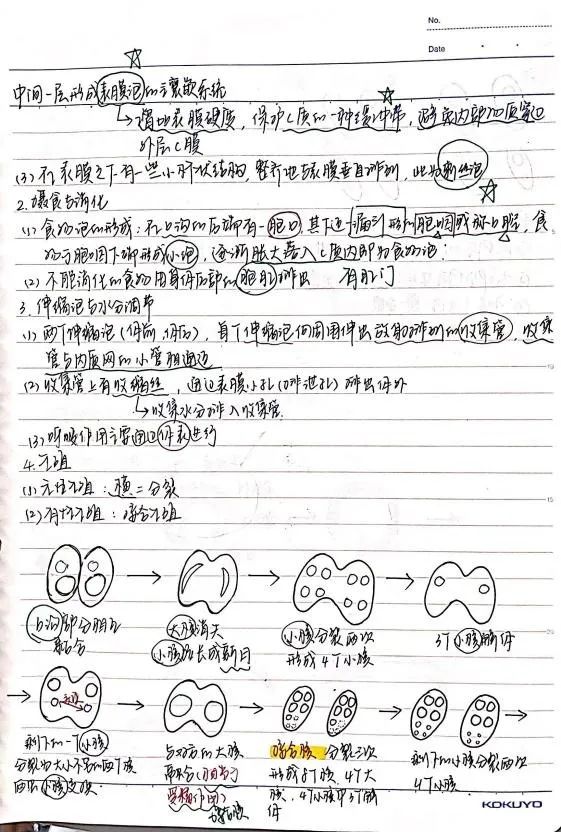 No.
Date
中间一层形成表膜泡的镶嵌系统
→增加表膜硬度,保护C质的一种缓冲带,避免内部物质穿过
外层C膜
(3) 在表膜之下有一些小杆状结构,整齐地与表膜垂直排列,此为刺丝泡
2. 摄食与消化
(1) 食物泡的形成:在口沟的后端有一胞口,其下连一漏斗形的胞咽或称口腔,食
物于胞咽下端形成小泡,逐渐胀大落入C质内即为食物泡;
(2) 不能消化的食物由身体后部的胞肛排出 有肛门
3. 伸缩泡与水分调节
(1) 两个伸缩泡(体前,体后),每个伸缩泡向周围伸出放射排列的收集管,收集
管与内质网的小管相通连
(2) 收集管上有收缩丝,通过表膜小孔(排泄孔)排出体外
↳收集水分排入收集管
(3) 呼吸作用主要通过体表进行
4. 生殖
(1) 无性生殖:横二分裂
(2) 有性生殖:接合生殖
口沟部分相互
黏合
大核消失
小核拉长成新月
小核分裂两次
形成4个小核
3个小核解体
剩下的一个小核
分裂为大小不等的两个核
两小核交换
与对方的大核
接合核 分裂三次
形成8个核,4个大
核,4个小核中3个解
体
剩下的小核分裂两次
4个小核
KOKUYO